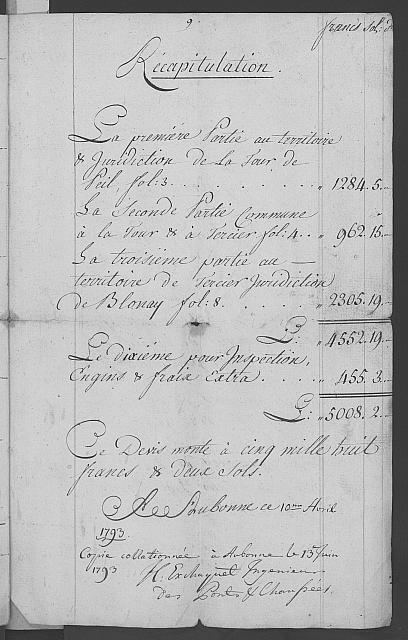 9.
francs sol: d
Récapitulation.
La première Partie au territoire
& Juridiction de La Tour de
Peil, fol: 3. . . . . . . . . . „ 1284. 5.
La Seconde Partie Commune
à la Tour & à Tercier fol: 4. . . „ 962. 15.
La troisième partie au —
territoire de Tercier Juridiction
de Blonay fol: 8. . . . . . . „ 2305. 19.
L: „ 4552. 19.
Le dixième pour Inspection,
Engins & fraix Extra. . . . . „ 455. 3.
L: „ 5008. 2.
Ce Devis monte à cinq mille huit
francs & deux Sols.
Aubonne ce 10me Avril
1793.
Copie collationnée à Aubonne le 13e Juin
1793 H. Exchaquet Ingenieur
des Ponts & Chaussées.